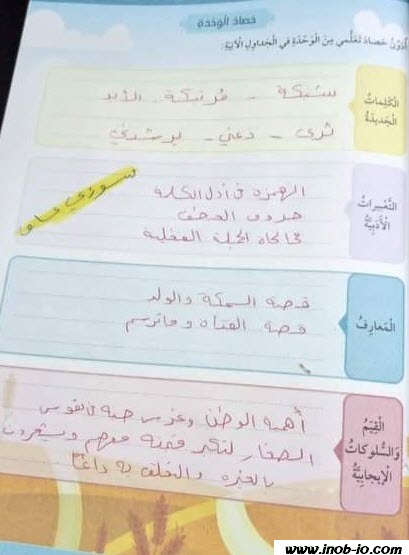 حصاد الوحدة
أدون حصاد تعلمي من الوحدة في الجداول الآتية:
الكلمات
الجديدة
شبكة - مرتبكة - الأبد
ثرى - دعني - يرشدني
التعبيرات
الأدبية
الهمزة في أول الكلمة
حروف العطف
محاكاة الجملة الفعلية
سوزي علو
المعارف
قصة السمكة والولد
قصة الفتاة وما ترسم
القيم
والسلوكات
الإيجابية
أهمية الوطن وغرس حبه في نفوس
الصغار لتكبر معهم ويشعرون
بالعزة به دائما
www.inob-io.com